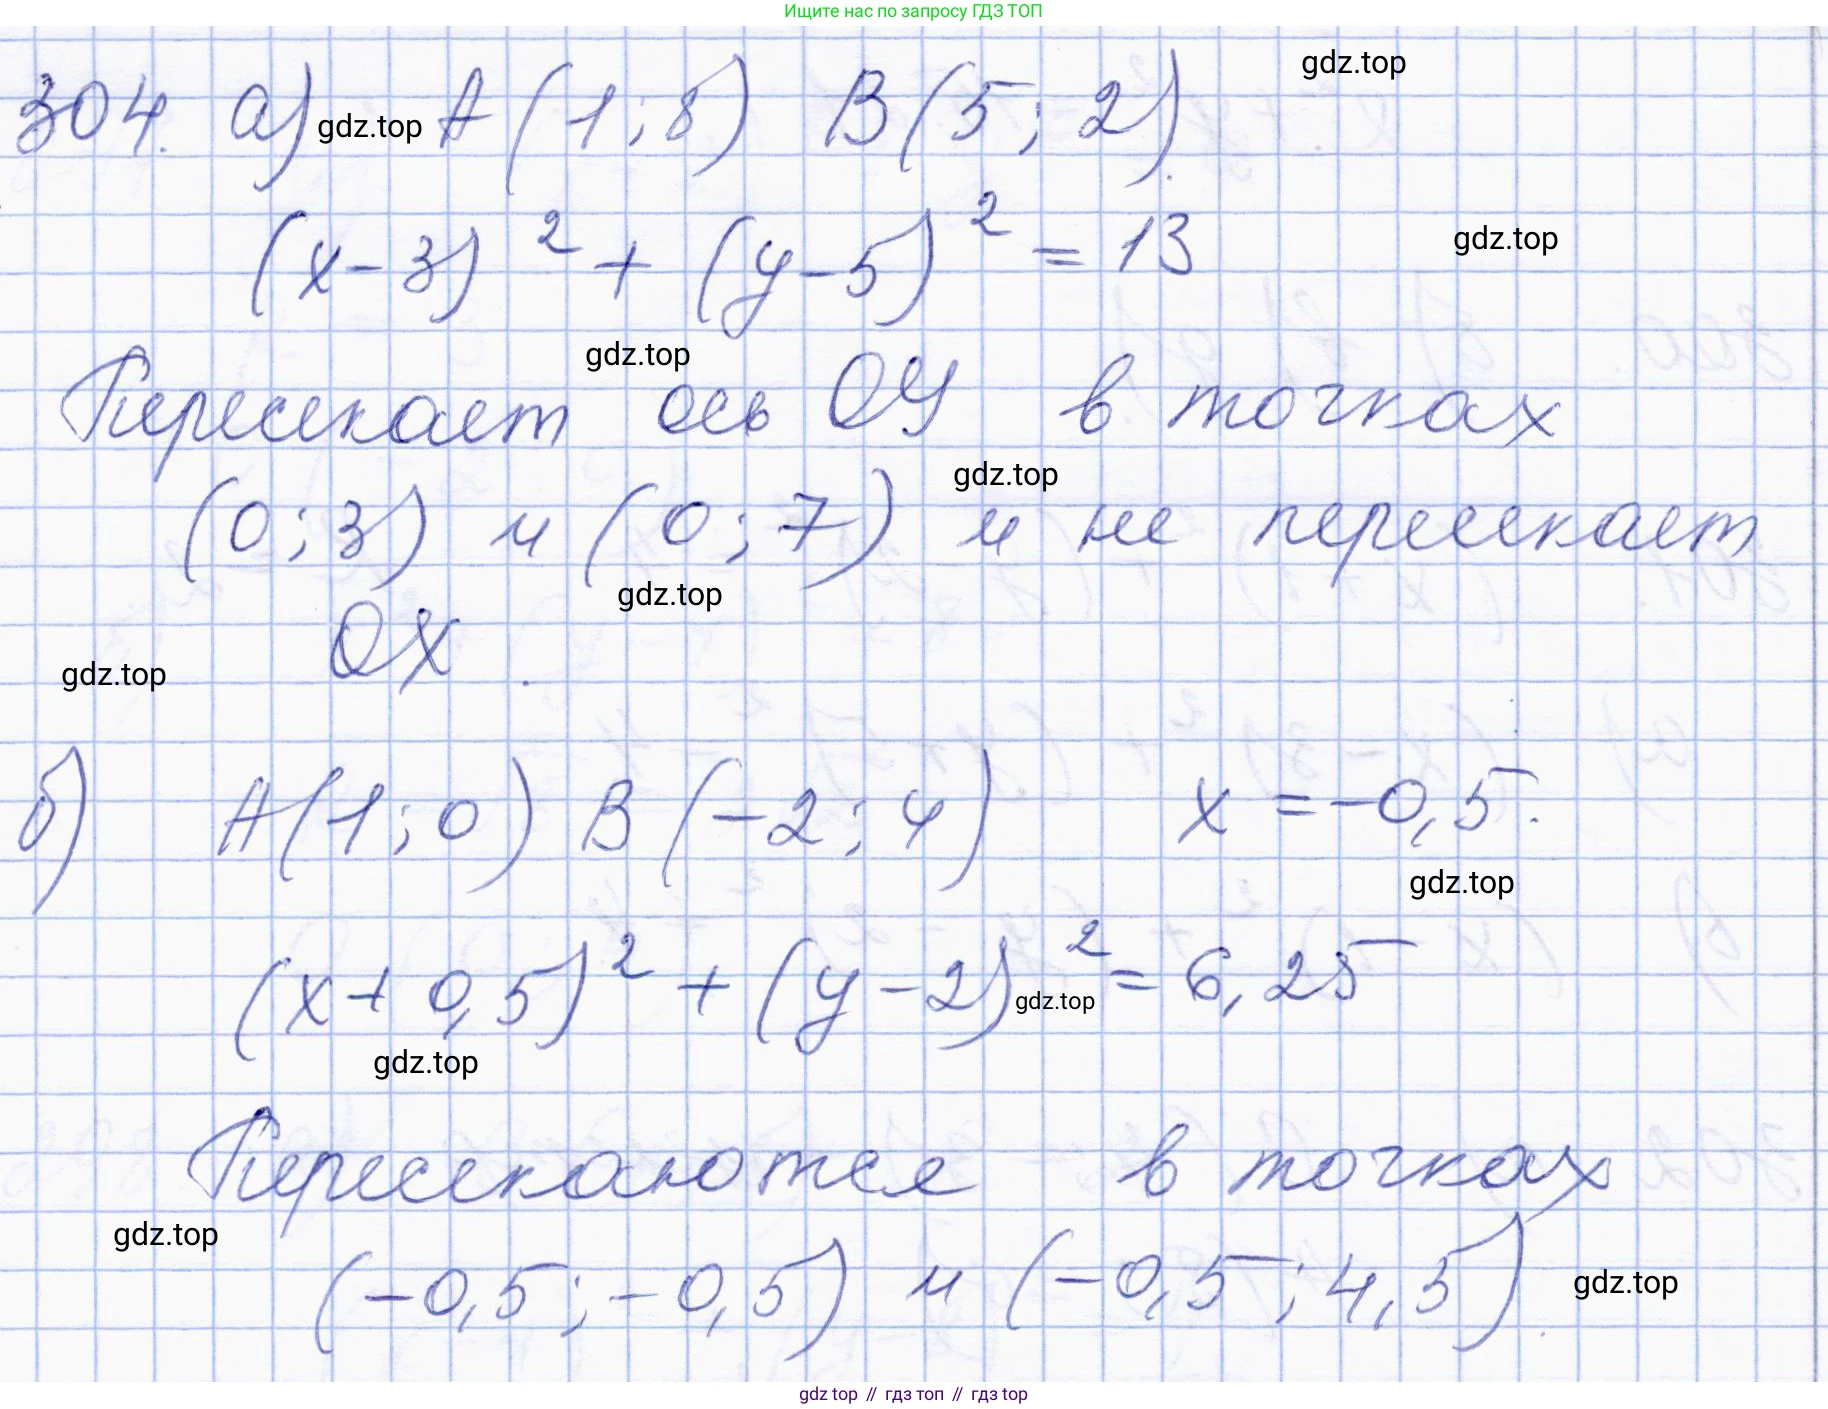 Ищите нас по запросу ГДЗ ТОП
gdz.top
304. а) gdz.top A(1;8) B(5;2).
(x-3)² + (y-5)² = 13
gdz.top
gdz.top
Пересекает ось OY в точках
gdz.top
(0;3) и (0;7) и не пересекает
gdz.top
OX.
gdz.top
б) A(1;0) B(-2;4) x = -0,5.
gdz.top
(x+0,5)² + (y-2)² = 6,25
gdz.top
gdz.top
Пересекаются в точках
gdz.top
(-0,5; -0,5) и (-0,5; 4,5).
gdz.top
gdz top // гдз топ // gdz top